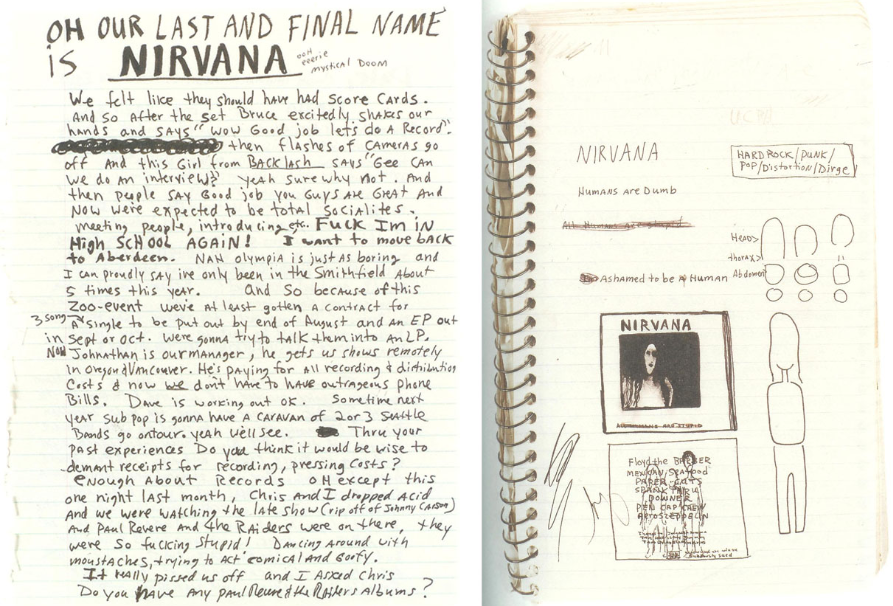 OH OUR LAST AND FINAL NAME
IS NIRVANA ooh eerie mystical Doom
We felt like they should have had score cards.
And so After the set Bruce excitedly shakes our
hands and says "WOW Good job lets do A Record".
then flashes of cameras go
off And this Girl from BACKLASH says "Gee can
We do an interview? yeah sure why not. And
then people say Good job you Guys are GREAT And
NOW were expected to be total socialites.
meeting people, introducing etc. FUCK IM IN
HIGH SCHOOL AGAIN! I want to move BACK
to Aberdeen. NAH olympia is just as boring and
I can proudly say ive only been in the Smithfield About
5 times this year. And So because of this
Zoo-event weve At least gotten a contract for
3 song A single to be put out by end of August and an EP out
in Sept or Oct. Were gonna try to talk them into an LP.
NOW Johnathan is our manager, he gets us shows remotely
in oregon & Vancouver. He's paying for all recording & distribution
Costs & now we dont have to have outrageous phone
Bills. Dave is working out OK. Sometime next
year sub pop is gonna have a CARAVAN of 2 or 3 Seattle
Bands go on tour. yeah we'll see. Thru your
past experiences Do you think it would be wise to
demant receipts for recording, pressing costs?
enough About Records oH except this
one night last month, Chris And I dropped Acid
And we were watching the late show (rip off of Johnny Carson)
And PAUL Revere And the Raiders were on there, they
were so fucking stupid! Dancing around with
moustaches, trying to Act comical And Goofy.
It really pissed us off and I Asked Chris
Do you have Any paul Revere & the Raiders Albums?
NIRVANA
HARD ROCK/PUNK/
POP/Distortion/Dirge
HUMANS ARE DUMB
All Humans are stupid
Head
thorax
Abdomen
Ashamed to be A Human
NIRVANA
ALL HUMANS ARE STUPID
Floyd the BARBER
MEXICAN SEAFOOD
PAPER CUTS
SPANK THRU
DOWNER
PEN CAP CHEW
AEROZEPPELIN